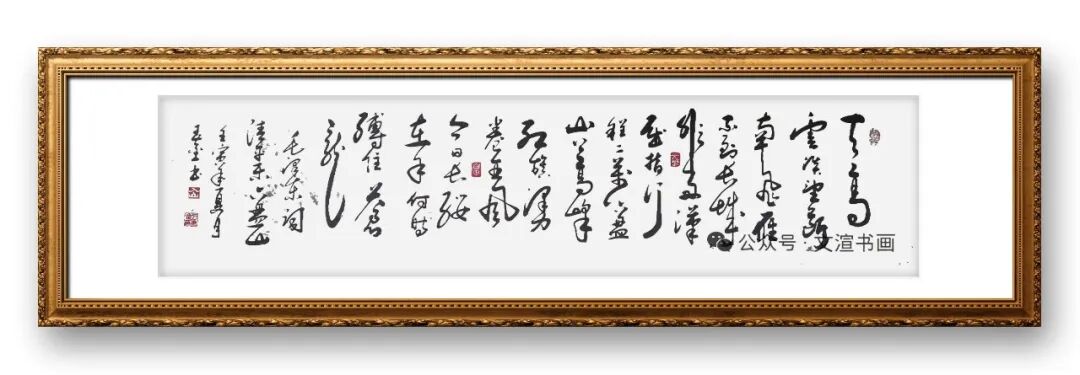 天高
雲淡望斷
南飞雁
不到长城
非好漢
屈指行
程二萬六盘
山上高峰
红旗漫
卷西风
今日长缨
在手何时
縛住蒼
龙
毛泽东词
清平乐六盘山
壬寅年夏月
书
公众号·文渲书画